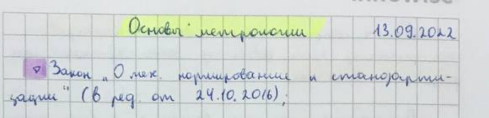 Основы метрологии 13.09.2022
Закон „О тех. нормировании и стандарти-
зации“ (в ред. от 24.10.2016);